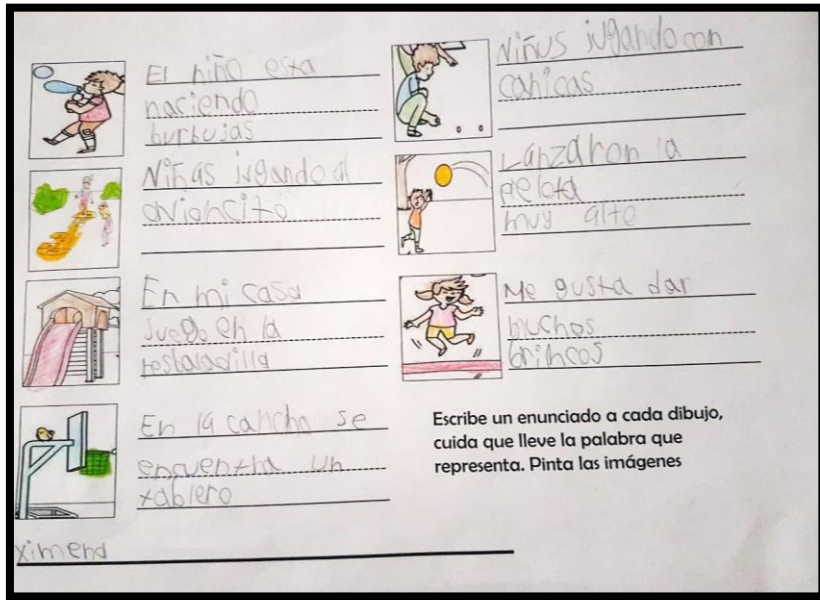 El niño esta
haciendo
burbujas
Niñas jugando al
avioncito
En mi casa
juego en la
resbaladilla
En la cancha se
encuentra un
tablero
Niñus jugando con
canicas
Lanzaron la
pelota
muy alto
Me gusta dar
muchos
brincos
Escribe un enunciado a cada dibujo,
cuida que lleve la palabra que
representa. Pinta las imágenes
ximena